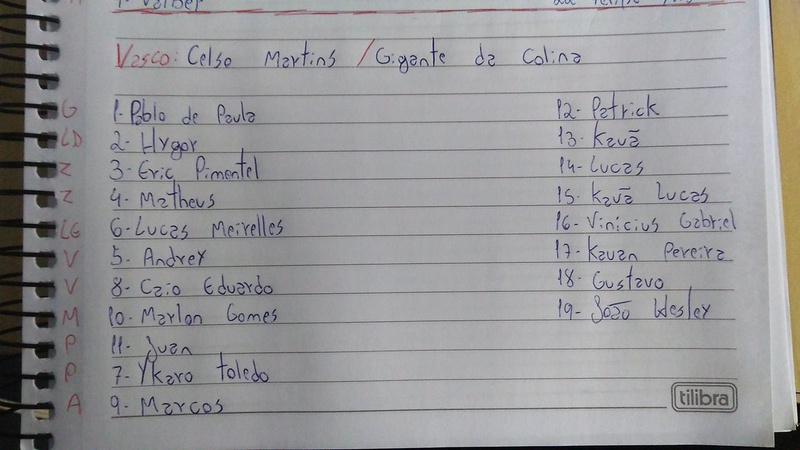 1. Valber
Vasco: Celso Martins / Gigante da Colina
G 1. Pablo de Paula
LD 2- Hygor
Z 3- Eric Pimentel
Z 4- Matheus
LE 6- Lucas Meirelles
V 5- Andrey
V 8- Caio Eduardo
M 10- Marlon Gomes
P 11- Juan
P 7- Ykaro Toledo
A 9- Marcos
12- Patrick
13- Kauã
14- Lucas
15- Kauã Lucas
16- Vinícius Gabriel
17- Kauan Pereira
18- Gustavo
19- João Wesley
tilibra